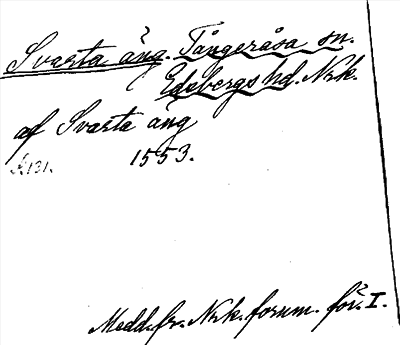 Svarta äng. Tångeråsa sn.
Edsbergs hd. Nrk.
af Svarta äng
1553.
Medd. fr. Nrk. fornm. för. I.